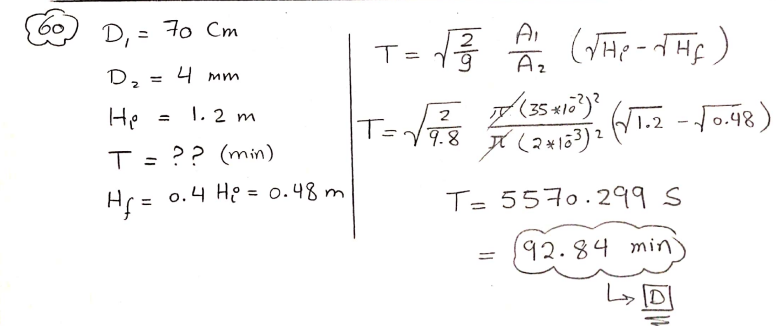 60
D₁ = 70 Cm
D₂ = 4 mm
Hᵢ = 1.2 m
T = ?? (min)
H_f = 0.4 Hᵢ = 0.48 m
T = √(2/g) A₁/A₂ (√Hᵢ - √H_f)
T = √(2/9.8) π(35*10⁻²)²/π(2*10⁻³)² (√1.2 - √0.48)
T = 5570.299 S
= 92.84 min
↳ D